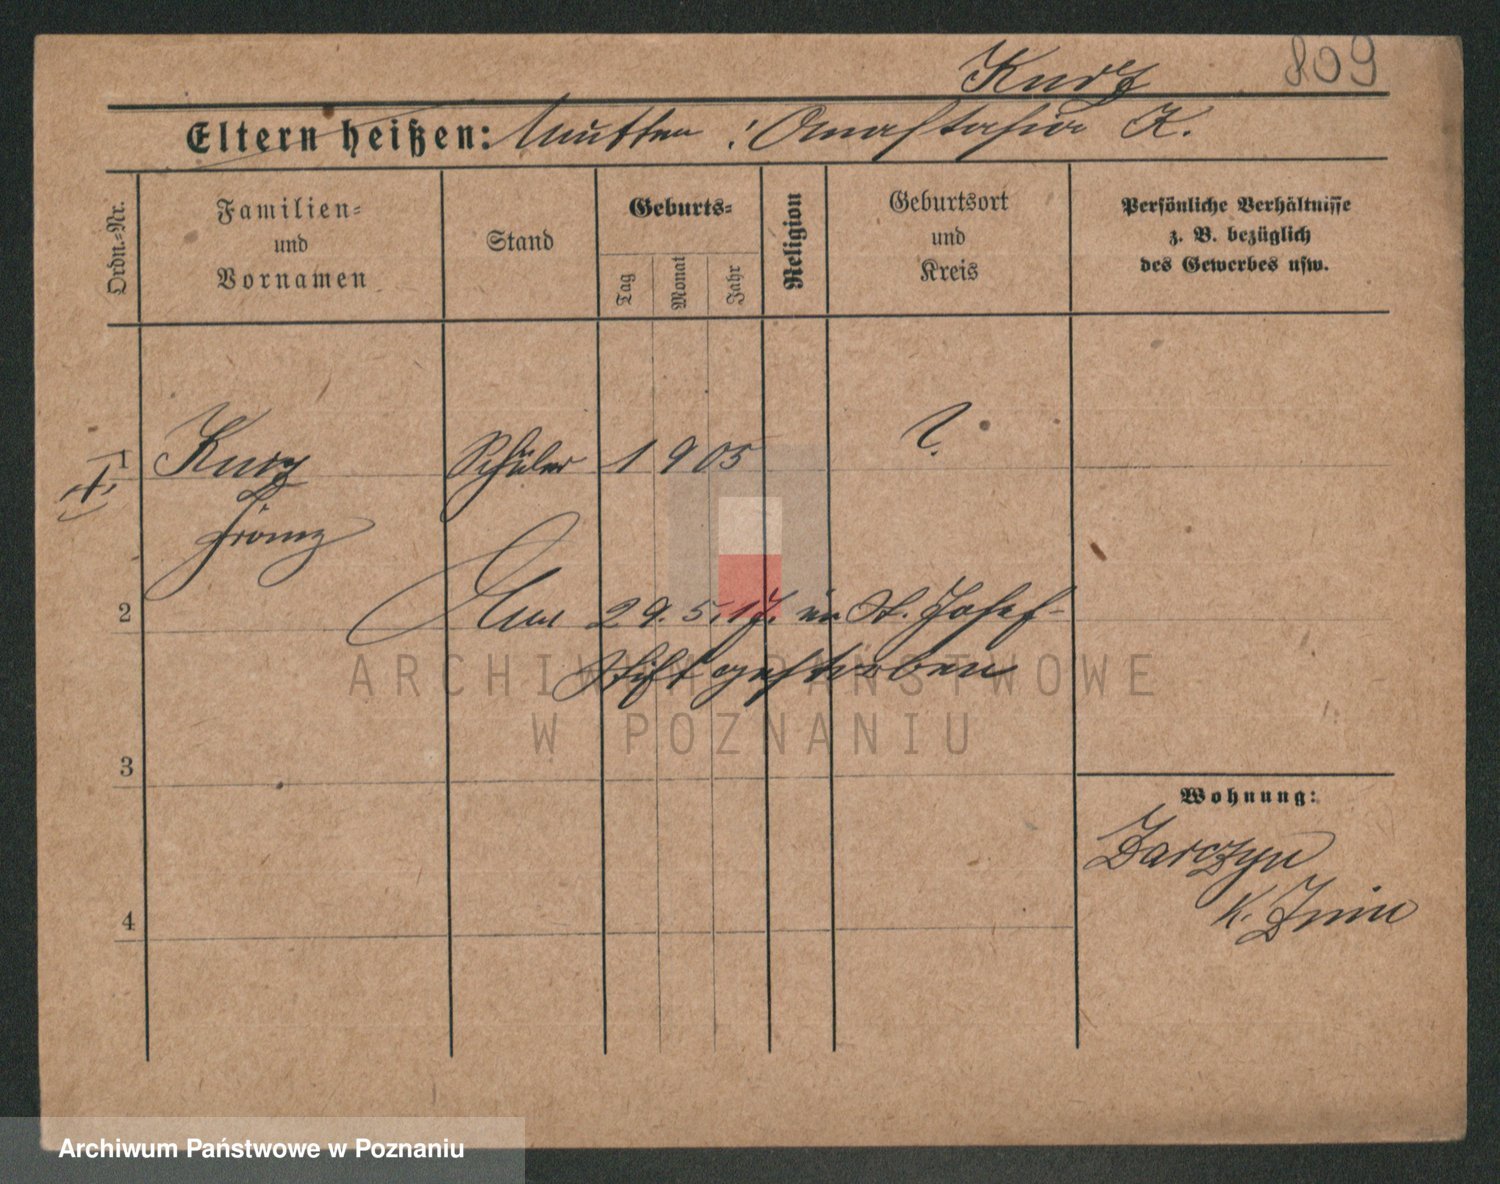 Kurz
809
Eltern heißen: Mutter: Anastasia K.
Ordn.-Nr.
Familien-
und
Vornamen
Stand
Geburts-
Tag
Monat
Jahr
Religion
Geburtsort
und
Kreis
Persönliche Verhältnisse
z. B. bezüglich
des Gewerbes usw.
1 Kurz Schüler 1 9 05 ?
Franz
2
Am 29.5.17. im St. Josef-
Stift gestorben
3
4
Wohnung:
Zarczyn
K. Znin
ARCHIWUM PAŃSTWOWE
W POZNANIU
Archiwum Państwowe w Poznaniu